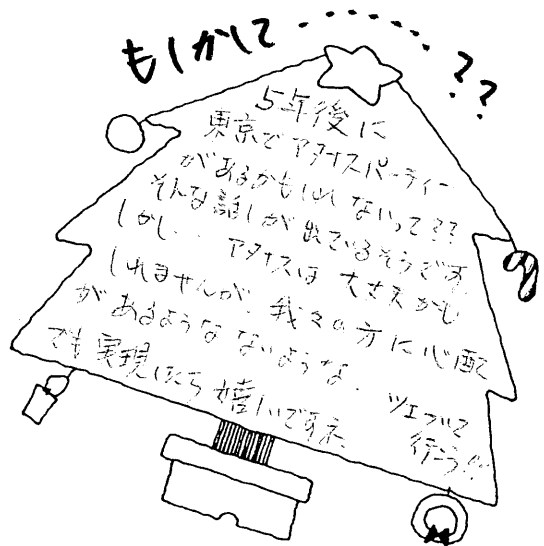 もしかして・・・・・・・・??
5年後に
東京でアタナスパーティー
があるかもしれないって??
そんな話しが出ているそうです。
しかし… アタナスは大丈夫かも
しれませんが、我々の方に心配
があるような ないような、
でも実現したら嬉しいですネ。
ツエブで
行こう!!